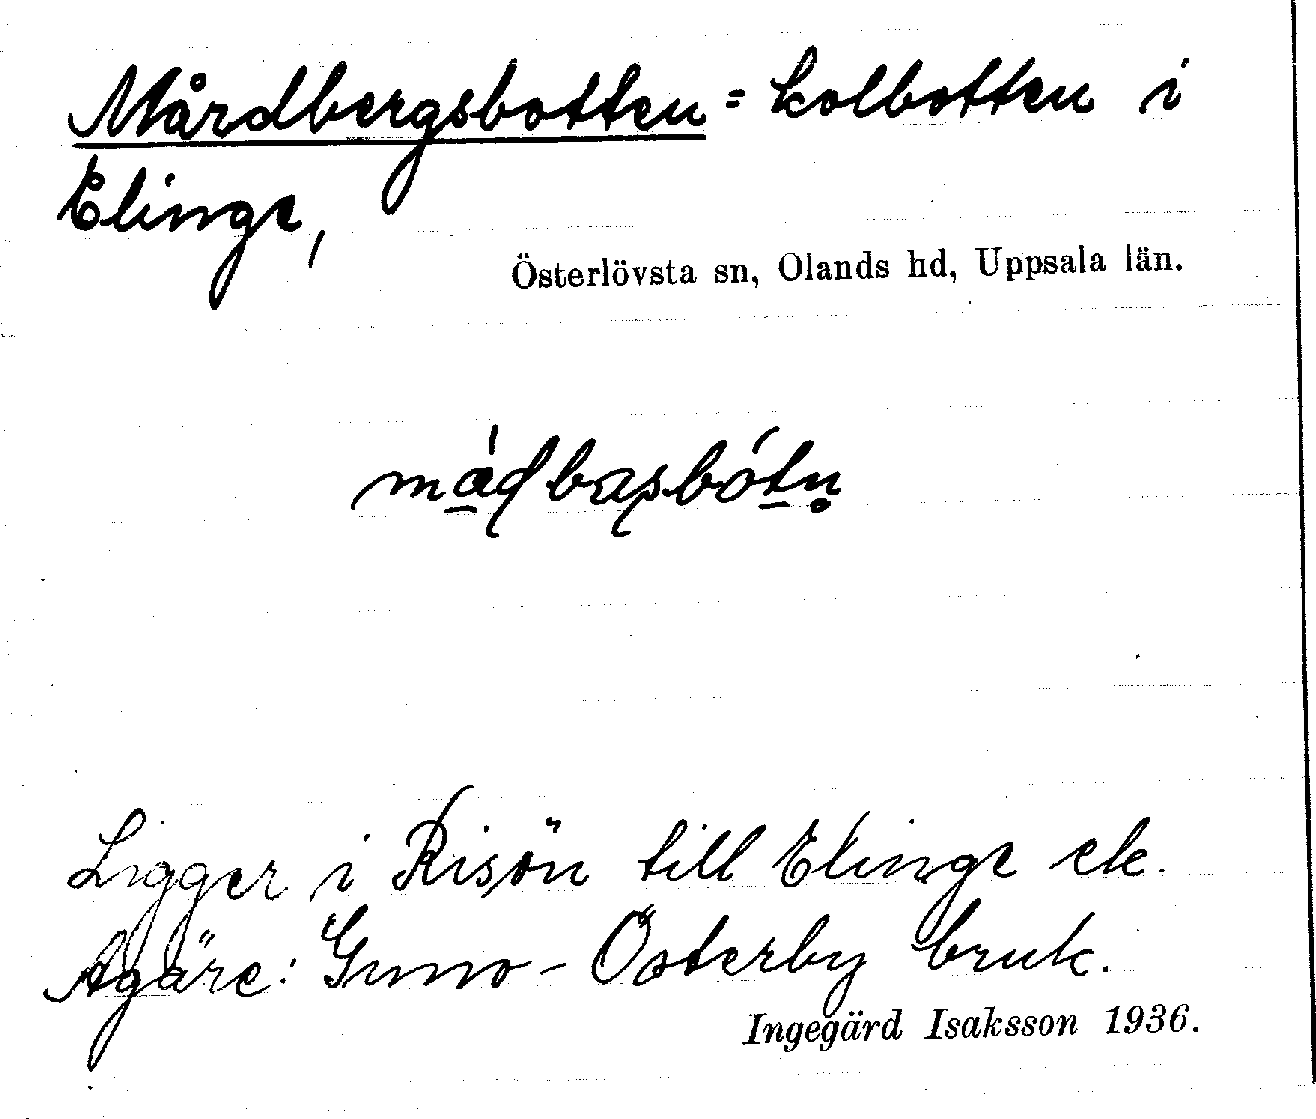 Mårdbergsbotten = kolbotten i
Elinge,
Österlövsta sn, Olands hd, Uppsala län.
Ligger i Risön till Elinge ek.
Ägäre: Gimo-Österby bruk.
Ingegärd Isaksson 1936.